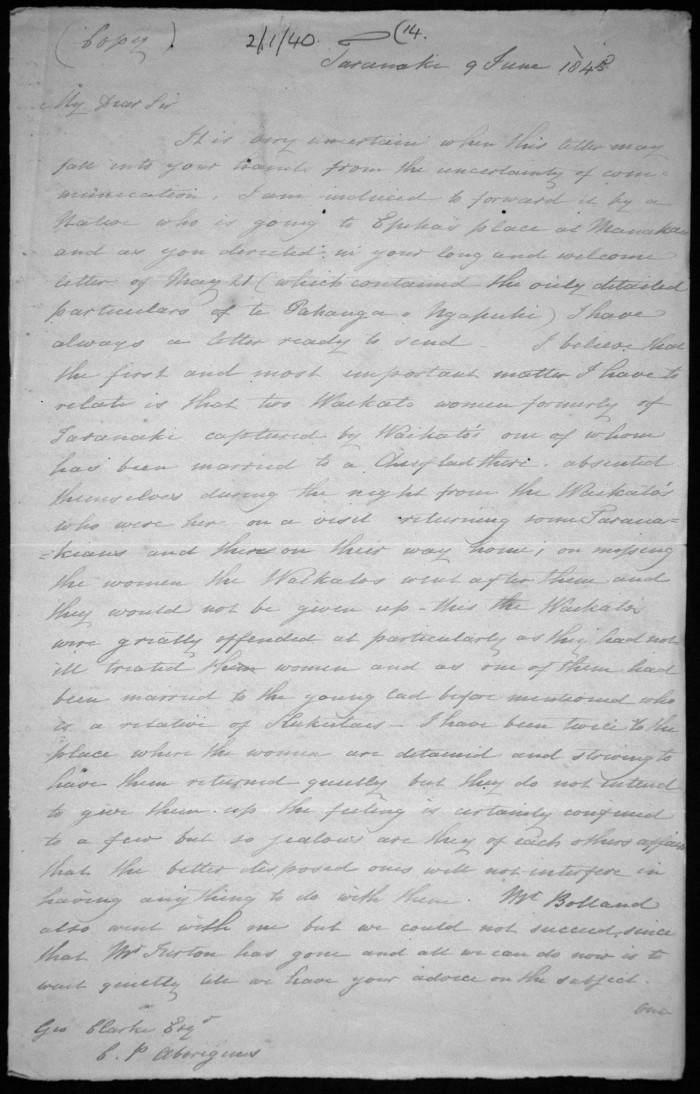 (Copy)
2/1/40. (14.
Taranaki 9 June 1845
My Dear Sir
It is very uncertain when this letter may
fall into your hands from the uncertainty of com-
munication. I am induced to forward it by a
Native who is going to Epiha's place at Manakau
and as you directed in your long and welcome
letter of May 21 (which contained the only detailed
particulars of te Pahanga o Ngapuhi) I have
always a letter ready to send - I believe that
the first and most important matter I have to
relate is that two Waikato women formerly of
Taranaki captured by Waikato's one of whom
has been married to a Chief lad there. absented
themselves during the night from the Waikato's
who were here on a visit returning some Parana-
=keans and there on their way home, on missing
the women the Waikatos went after them and
they would not be given up - this the Waikatos
were greatly offended at particularly as they had not
ill treated them women and as one of them had
been married to the young lad before mentioned who
is a relative of Kukutais - I have been twice to the
place where the women are detained and striving to
have them returned quietly but they do not intend
to give them up the feeling is certainly confined
to a few but so jealous are they of each others affairs
that the better disposed ones will not interfere in
having anything to do with them. Mr Bolland
also went with me but we could not succeed, since
that Mr Turton has gone and all we can do now is to
wait quietly till we have your advice on the subject.
One
Geo Clarke Esqr
C. P Aborigines